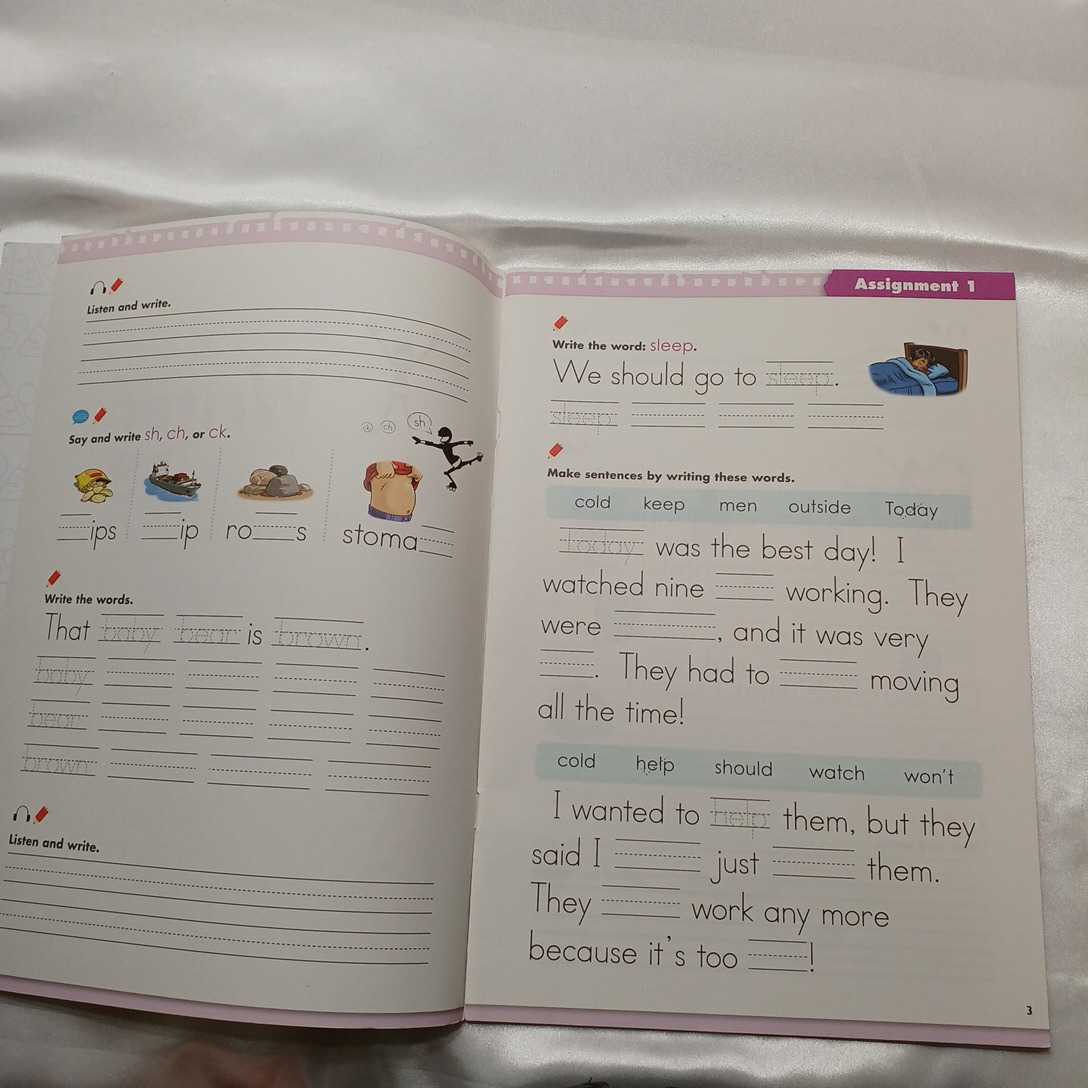 Listen and write.
Say and write sh, ch, or ck.
ch sh
ips ip ro s stoma
Write the words.
That baby bear is brown.
baby
bear
brown
Listen and write.
Assignment 1
Write the word: sleep.
We should go to sleep.
sleep
Make sentences by writing these words.
cold keep men outside Today
today was the best day! I
watched nine working. They
were , and it was very
. They had to moving
all the time!
cold help should watch won't
I wanted to help them, but they
said I just them.
They work any more
because it's too !
3